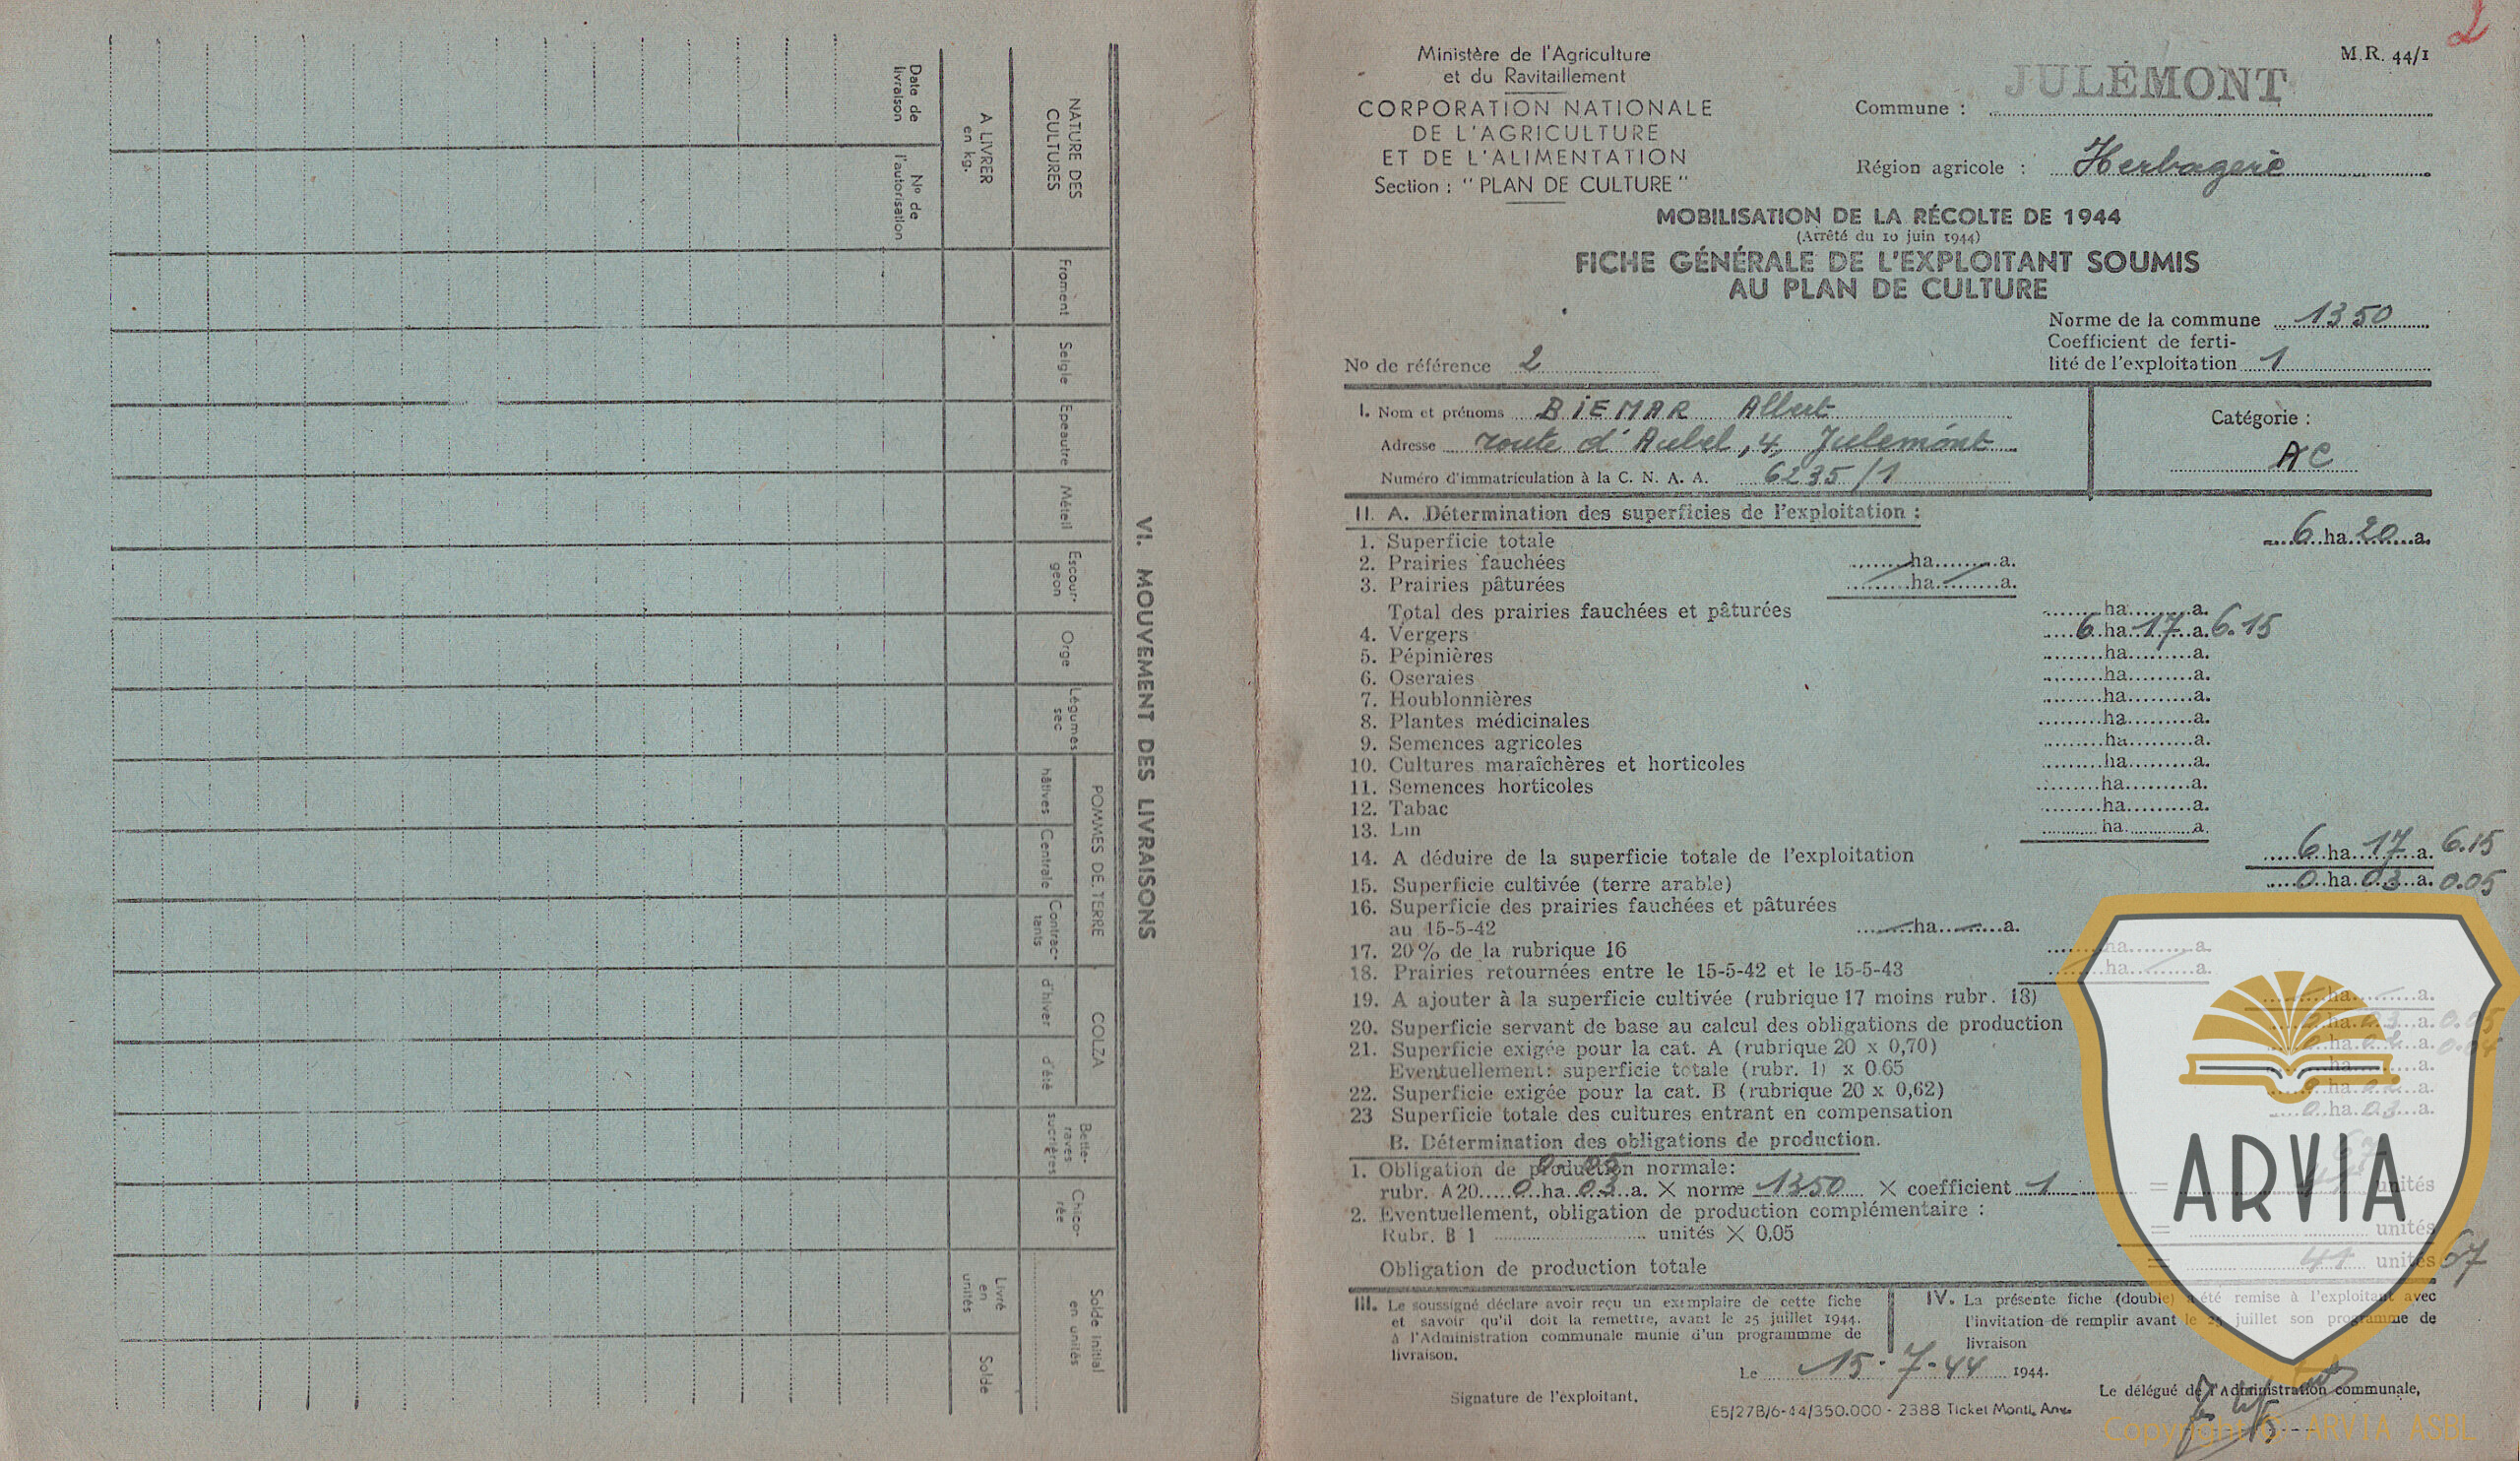 VI. MOUVEMENT DES LIVRAISONS
NATURE DES CULTURES
Froment
Seigle
Epeautre
Méteil
Escour-
geon
Orge
Légumes
sec
POMMES DE TERRE
hâtives
Centrale
Contrac-
tants
COLZA
d'hiver
d'été
Bette-
raves
sucrières
Chico-
rée
Solde initial
en unités
A LIVRER
en kg.
Livré
en
unités
Solde
Date de
livraison
No de
l'autorisation
2
M.R. 44/1
Ministère de l'Agriculture
et du Ravitaillement
CORPORATION NATIONALE
DE L'AGRICULTURE
ET DE L'ALIMENTATION
Section : "PLAN DE CULTURE"
Commune : JULÉMONT
Région agricole : Herbagère
MOBILISATION DE LA RÉCOLTE DE 1944
(Arrêté du 10 juin 1944)
FICHE GÉNÉRALE DE L'EXPLOITANT SOUMIS
AU PLAN DE CULTURE
Norme de la commune 1350
Coefficient de ferti-
lité de l'exploitation 1
No de référence 2
I. Nom et prénoms BIEMAR Albert
Adresse route d'Aubel, 4, Julémont
Numéro d'immatriculation à la C. N. A. A. 6235/1
Catégorie :
AC
II. A. Détermination des superficies de l'exploitation :
1. Superficie totale 6 ha 20 a.
2. Prairies fauchées ha a.
3. Prairies pâturées ha a.
Total des prairies fauchées et pâturées ha a.
4. Vergers 6 ha 17 a. 6.15
5. Pépinières ha a.
6. Oseraies ha a.
7. Houblonnières ha a.
8. Plantes médicinales ha a.
9. Semences agricoles ha a.
10. Cultures maraîchères et horticoles ha a.
11. Semences horticoles ha a.
12. Tabac ha a.
13. Lin ha a.
14. A déduire de la superficie totale de l'exploitation 6 ha 17 a. 6.15
15. Superficie cultivée (terre arable) 0 ha 03 a. 0.05
16. Superficie des prairies fauchées et pâturées
au 15-5-42 ha a.
17. 20 % de la rubrique 16 ha a.
18. Prairies retournées entre le 15-5-42 et le 15-5-43 ha a.
19. A ajouter à la superficie cultivée (rubrique 17 moins rubr. 18) ha a.
20. Superficie servant de base au calcul des obligations de production ha 03 a. 0.05
21. Superficie exigée pour la cat. A (rubrique 20 x 0,70) ha a.
Eventuellement: superficie totale (rubr. 1) x 0.65 ha a.
22. Superficie exigée pour la cat. B (rubrique 20 x 0,62) ha a.
23 Superficie totale des cultures entrant en compensation 0 ha 03 a.
B. Détermination des obligations de production.
1. Obligation de production normale:
rubr. A 20 0 ha 03 a. X norme 1350 X coefficient 1 = 41 unités
2. Eventuellement, obligation de production complémentaire :
Rubr. B 1 unités X 0,05 = unités
Obligation de production totale = 41 unités 67
III. Le soussigné déclare avoir reçu un exemplaire de cette fiche
et savoir qu'il doit la remettre, avant le 25 juillet 1944.
à l'Administration communale munie d'un programmme de
livraison.
Signature de l'exploitant,
IV. La présente fiche (double) a été remise à l'exploitant avec
l'invitation de remplir avant le 25 juillet son programme de
livraison
Le 15-7-44 1944.
Le délégué de l'Administration communale,
E5/27B/6-44/350.000 - 2388 Ticket Montl. Anv.
ARVIA
Copyright © ARVIA ASBL